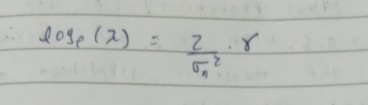 ∴ log_e(λ) = 2/σ_n² . γ